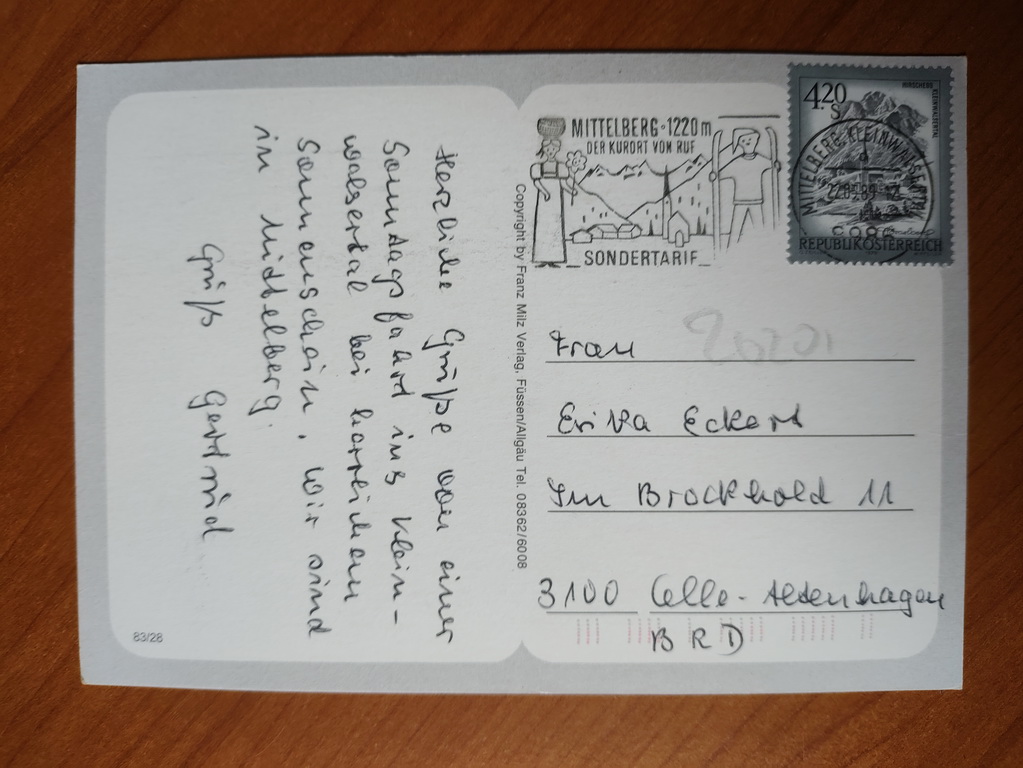 Herzliche Grüße von einer
Sonntagsfahrt ins Klein-
walsertal bei herrlichem
Sonnenschein. Wir sind
in Mittelberg.
Gruß Gertrud
83/28
Copyright by Franz Milz Verlag, Füssen/Allgäu Tel. 08362/6008
MITTELBERG·1220m
DER KURORT VON RUF
SONDERTARIF
420
S
HIRSCHEGG
KLEINWALSERTAL
REPUBLIK ÖSTERREICH
MITTELBERG, KLEINWALSERTAL
Frau
Erika Eckert
Im Brockhold 11
3100 Celle-Altenhagen
BRD